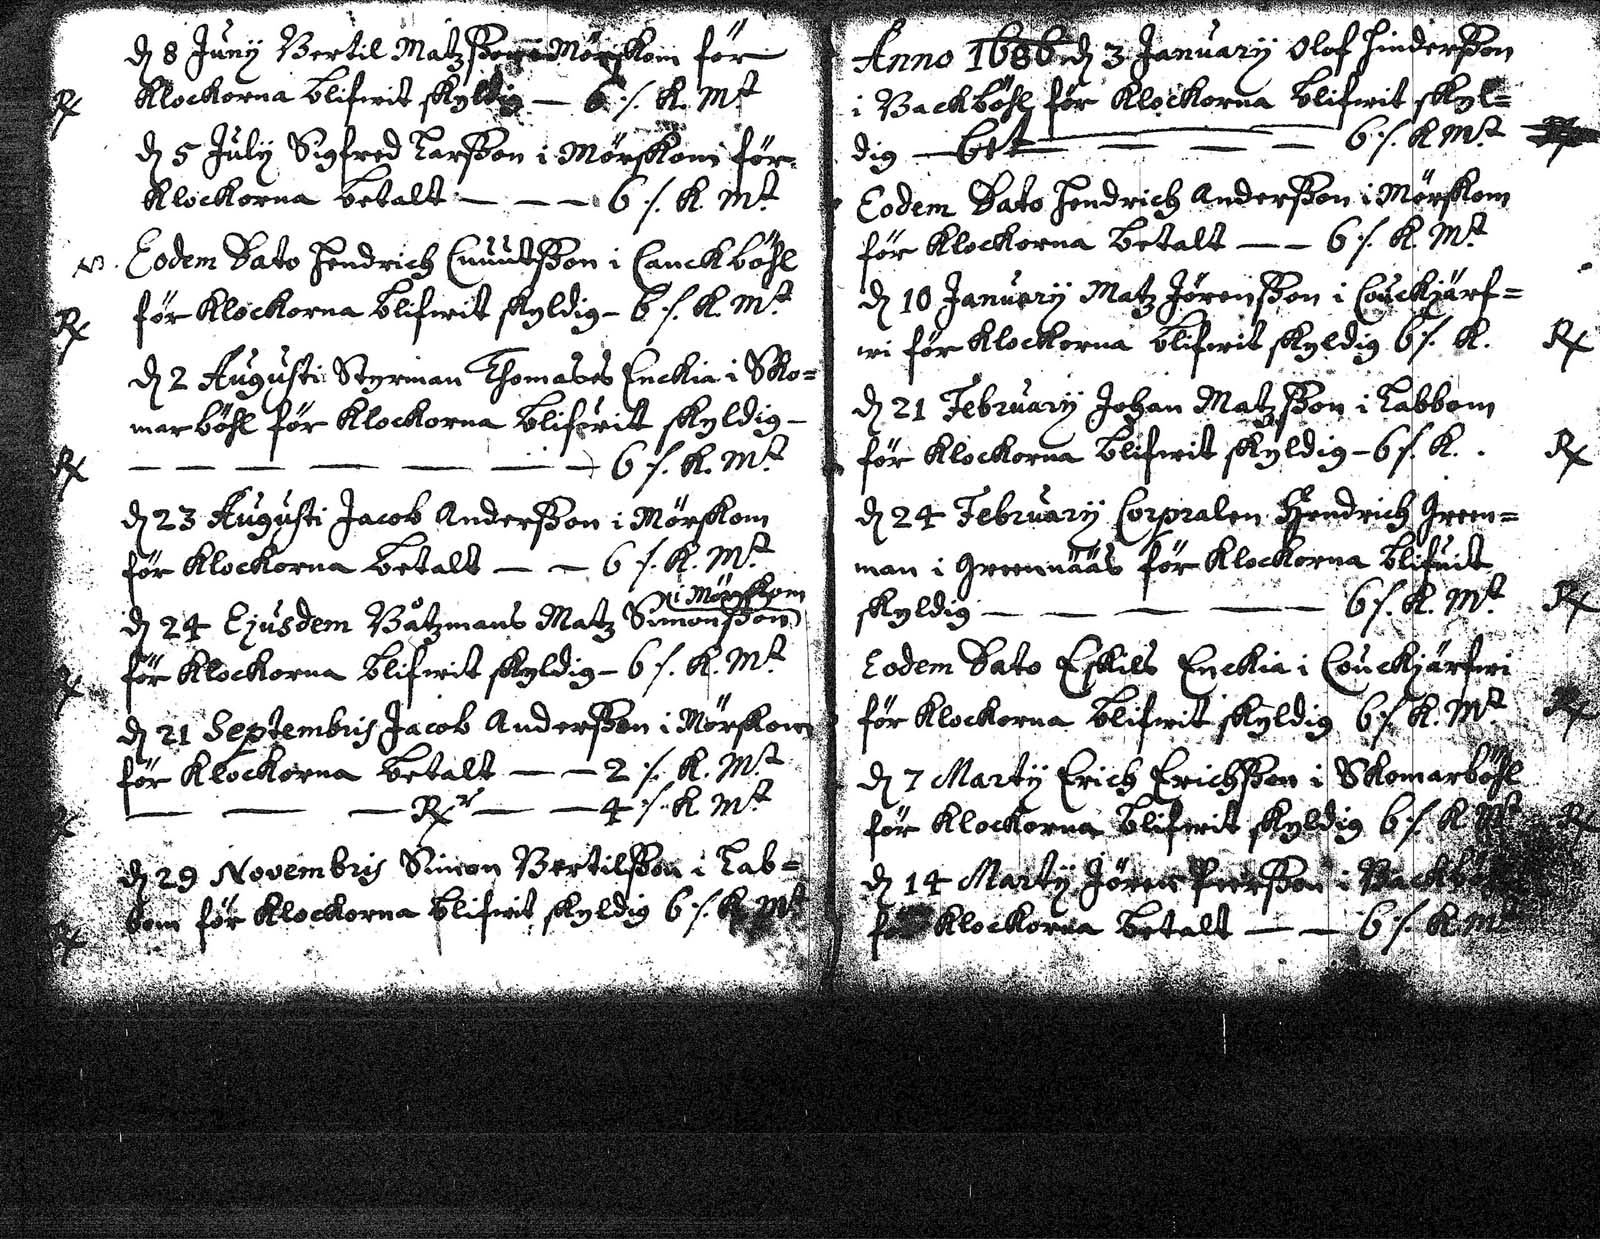 d 8 Junÿ Bertil Matzsson i Mörskom för
Klockorna blifwit skyldig — 6 :/. K. Mt
Rx
d 5 Julÿ Sigfred Larsson i Mörskom för
Klockorna betalt — — — 6 :/. K. Mt
Eodem Dato Hendrich Cnuutsson i Lanckböhl
för Klockorna blifwit skyldig – 6 :/. K. Mt
Rx
d 2 Augusti Styrman Thomases Enckia i Sko=
marböhl för Klockorna blifwit skyldig –
Rx — — — — — — — 6 :/. K. Mt
d 23 Augusti Jacob Andersson i Mörskom
för Klockorna betalt — — 6 :/. K. Mt
i Mörskom
d 24 Ejusdem Båtzmans Matz Simonsson
för Klockorna blifwit skyldig – 6 :/. K. Mt
Rx
d 21 Septembris Jacob Andersson i Mörskom
för Klockorna betalt — — 2 :/. K. Mt
Rx — — — Rxr — — 4 :/. K Mt
d 29 Novembris Simon Bertilsson i Lab=
bom för Klockorna blifwit skyldig 6 :/. K Mt
Rx
Anno 1686 d 3 Januarÿ Olof Hindersson
i Backböhl för Klockorna blifwit skyl=
dig — bet — — — — 6 :/. K Mt
Eodem Dato Hendrich Andersson i Mörskom
för Klockorna betalt — — 6 :/. K. Mt
d 10 Januarÿ Matz Jörensson i Couckjärf=
wi för Klockorna blifwit skyldig 6 :/. K. Rx
d 21 Februarÿ Johan Matzsson i Labbom
för Klockorna blifwit skyldig – 6 :/. K. Rx
d 24 Februarÿ Corpralen Hendrich Green=
man i Greennääs för Klockorna blifwit
skyldig — — — — — 6 :/. K. Mt Rx
Eodem Dato Eskils Enckia i Couckjärfwi
för Klockorna blifwit skyldig 6 :/. K. Mt Rx
d 7 Martÿ Erich Erichsson i Skomarböhl
för Klockorna blifwit skyldig 6 :/. K Mt Rx
d 14 Martÿ Jören Peersson i Backböhl
för Klockorna betalt — — 6 :/. K. Mt